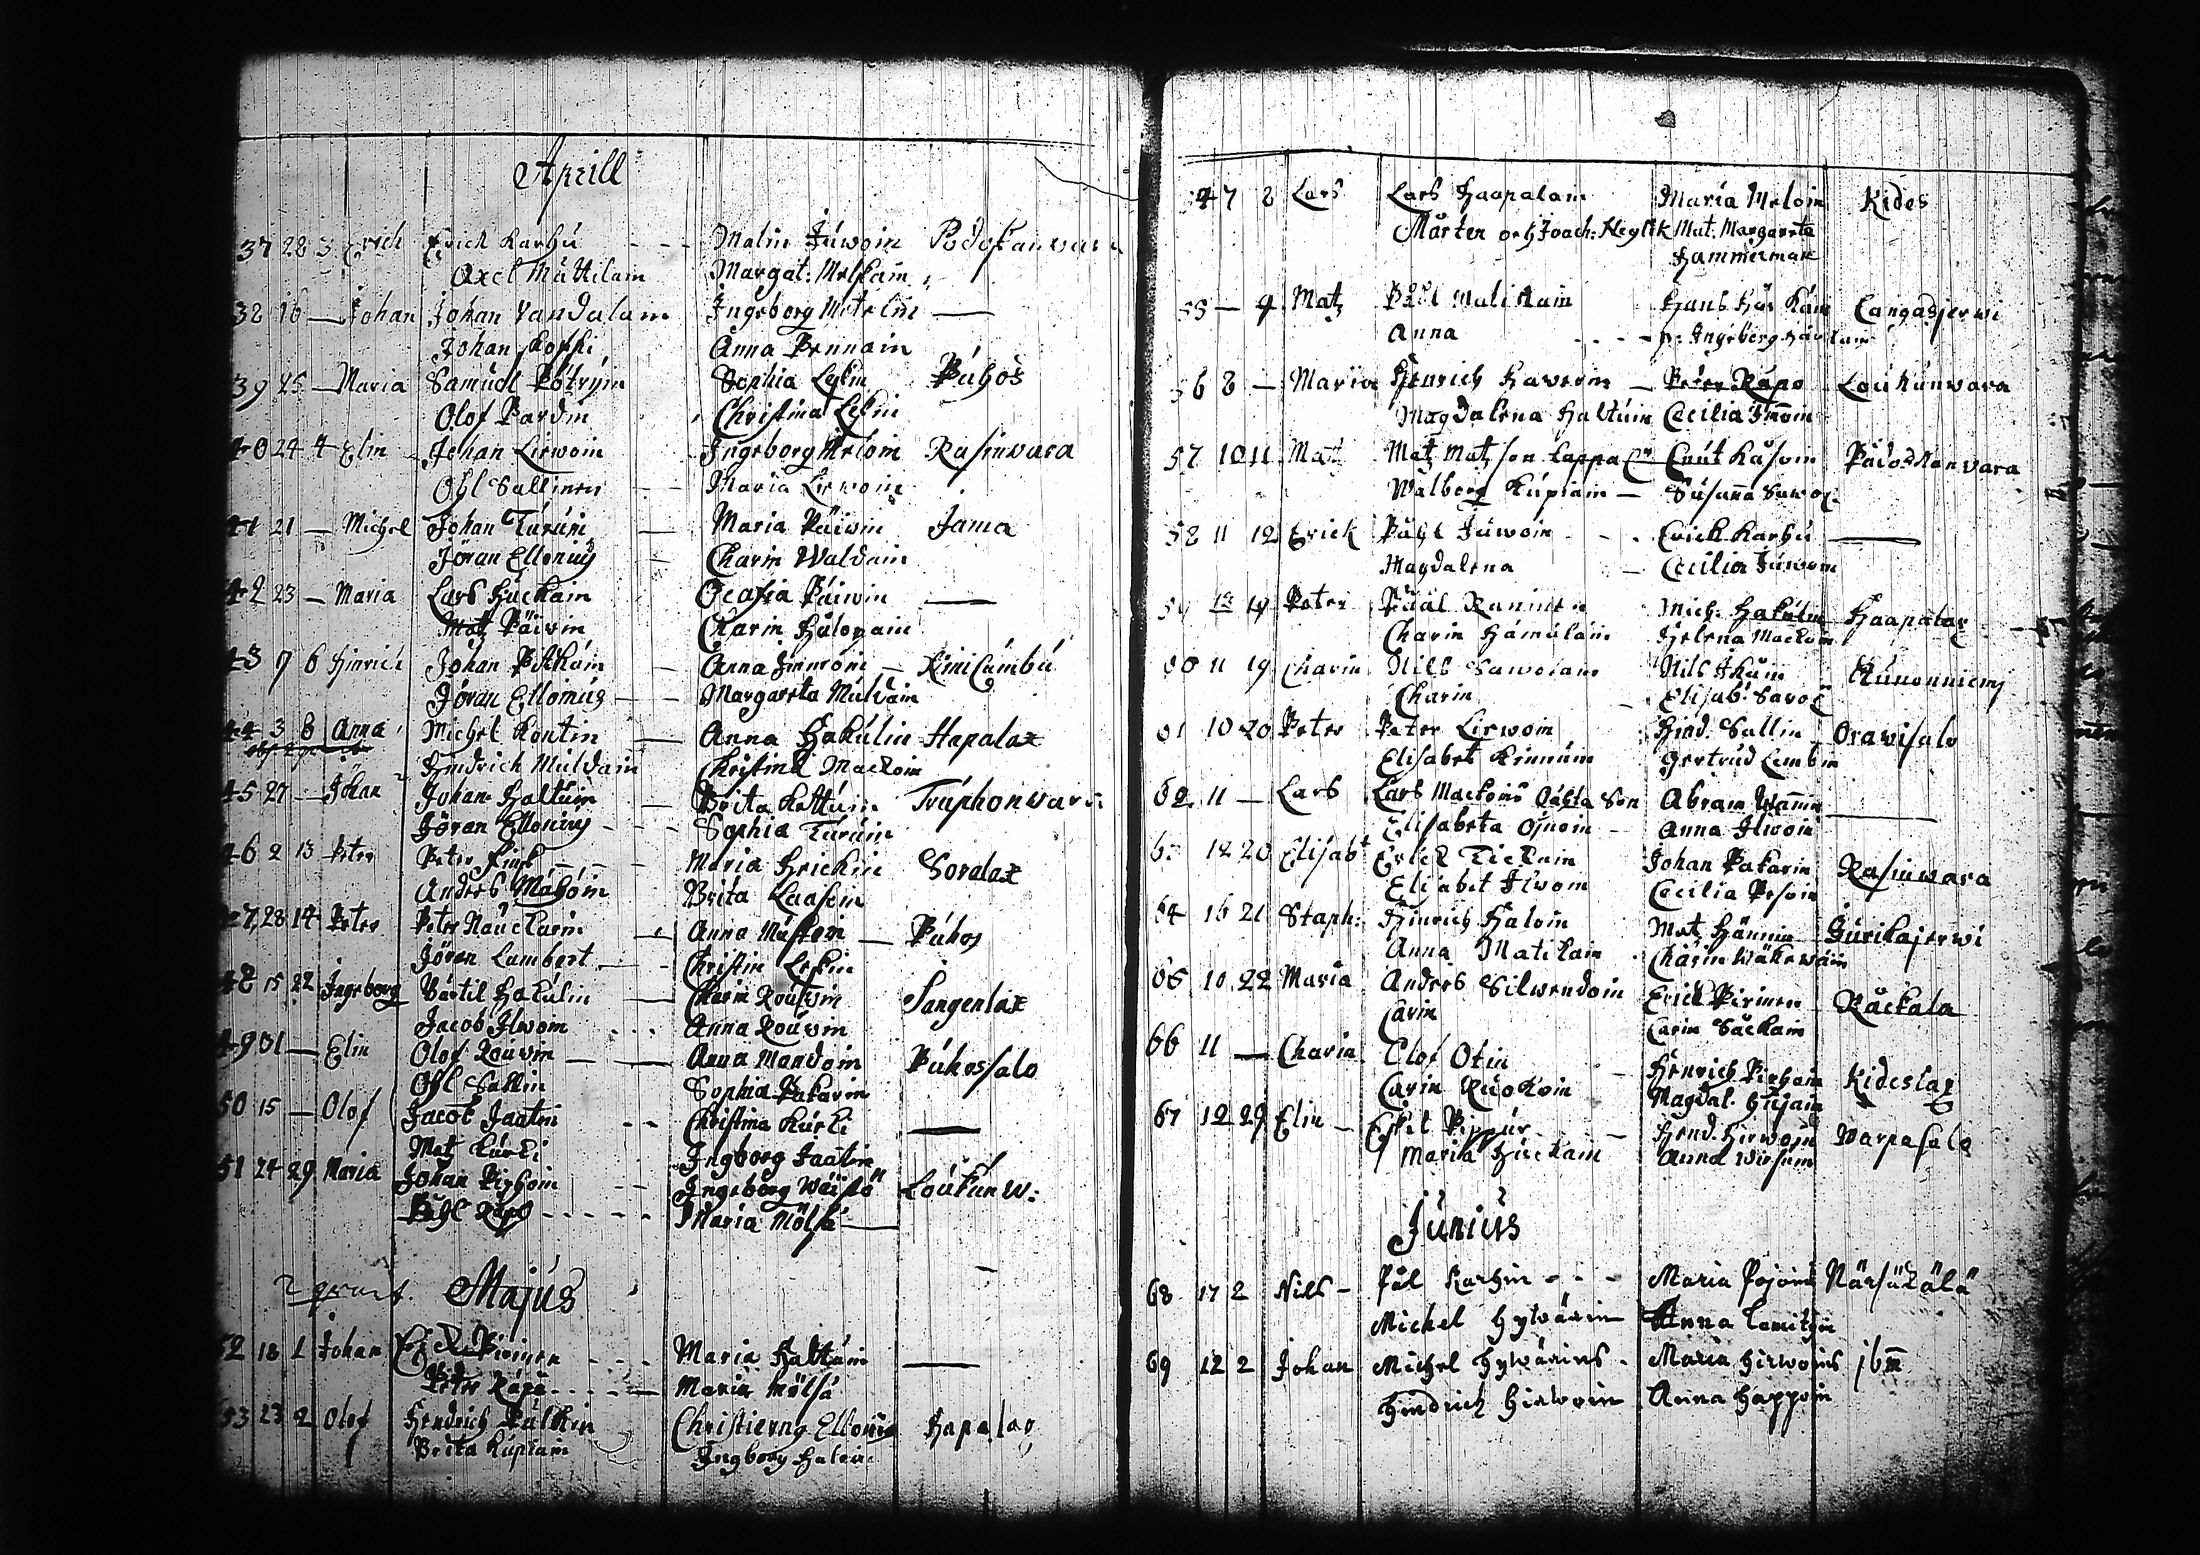 Aprill
37 28 3 Erich Erich Karhu - - - Malin Juwoin Podoskanwara
Axel Muttilain Margat: Melkain
38 16 — Johan Johan Vandalain Ingeborg Metelin —
Johan Koppi Anna Pennain
39 25 — Maria Samuel Pötryin Sophia Leskin Puhos
Olof Pardin Christina Leskin
40 24 4 Elin Johan Lirwoin Ingeborg Meloin Rasiwara
Ohl Sallinen Maria Lirwoin
41 21 — Michel Johan Turuin — Maria Päiwin Jama
Jöran Ellonius — Charin Waldain
42 23 — Maria Lars Huckain Päiwin —
Matz Päiwin Charin Halopain
43 9 6 Hinrich Johan Pitkäin — Anna Immoin — Kinilambu
Jöran Ellonius — Margareta Muldain
44 3 8 Anna Michel Kontin — Anna Hakulin Hapalax
Hindrich Muldain Christina Mackoin
45 27 — Johan Johan Haltuin — Brita Kettuin Truphonwara
Jöran Ellonius - - - Sophia Turuin
46 2 13 Peter Peter — Maria Hrickin Soralax
Anders Mähöin Brita Laasein
47 28 14 Peter Peter Näuckarin Anna Mustoin — Puhos
Jören Lambert Christin Leskin
48 15 22 Ingeborg Bärtil Hakulin — Karin Rouwin Sangenlax
Jacob Ilwoin - - - Anna Rouwin
49 31 — Elin Olof Rouwin — Anna Mandoin Puhossalo
Ohl Sallin Sophia Pakarin
50 15 — Olof Jacob Jaatin - - Christina Kurki —
Matz Kurki Ingborg Jaatin
51 24 29 Maria Johan Pirhoin - - Ingeborg Wäistö Loukunw:
Påhl Räpö - - - - - Maria Mölsä —
Majus
52 18 1 Johan Pirinen - - - Maria Haltuin —
Peter Räpä - - - — Maria Mölsä
53 23 2 Olof Hendrich Pulkin Christierny Ellonius Hapalax
Brita Kupiain Ingborg Halin
54 7 2 Lars Lars Haapalain Maria Meloin Kides
Mårten och Joach: Neglik Mat. Margareta
Hammerman
55 — 4 Matz Påhl Matikain Hans Här Kain Cangasjerwi
Anna - - - Ingeborg
56 8 — Maria Henrich Haweroin — Peter Räpo Loukunwara
Magdalena Haltuin Cecilia Immoin
57 10 11 Matz Matz Matzson Lappal. Cnut Kåsoin Pådoskanwara
Walborg Kupiain — Susanna Sawol.
58 11 12 Erick Påhl Juwoin - - . Erick Karhu —
Magdalena — Cecilia Juwoin
59 13 19 Peter Påål Raninen Mich: Hakulin Haapalax
Charin Hämäläin Helena Mackoin
60 11 19 Charin Nils Sawolain Nils Ikäin Kunonniemj
Charin — Elisab: Savol.
61 10 20 Peter Peter Lirwoin Hind. Sallin Orawisalo
Elisabet Kinnuin Gertrud Lembin
62 11 — Lars Lars Mackoins Son Abram Wäninn —
Elisabeta Ojnoin — Anna Ilwoin
63 12 20 Elisabt Erick Kickain Johan Pakarin Rasiwara
Elisabet Ilwoin Cecilia Pesoin
64 16 21 Staph: Hinrich Haloin Mat. Hännin Jurikajerwi
Anna Matikain Charin Wäkewäin
65 10 22 Maria Anders Silwendoin Erick Pirinen Räckala
Carin Carin Säckain
66 11 — Charin Olof Otin — Henrich Pirhoin Kideslax
Carin Ruokoin Magdal. Hujain
67 12 29 Elin — Eskil — Hend. Hirwoin Warpasalo
Maria Huckain Anna
Junius
68 17 2 Nills - Pål Karhin - - - Maria Pojoins Närsäkälä
Michel Hywärin Anna
69 12 2 Johan Michel Hywärins - Maria Hirwoins ibm
Hindrich Hirwoin Anna Happoin